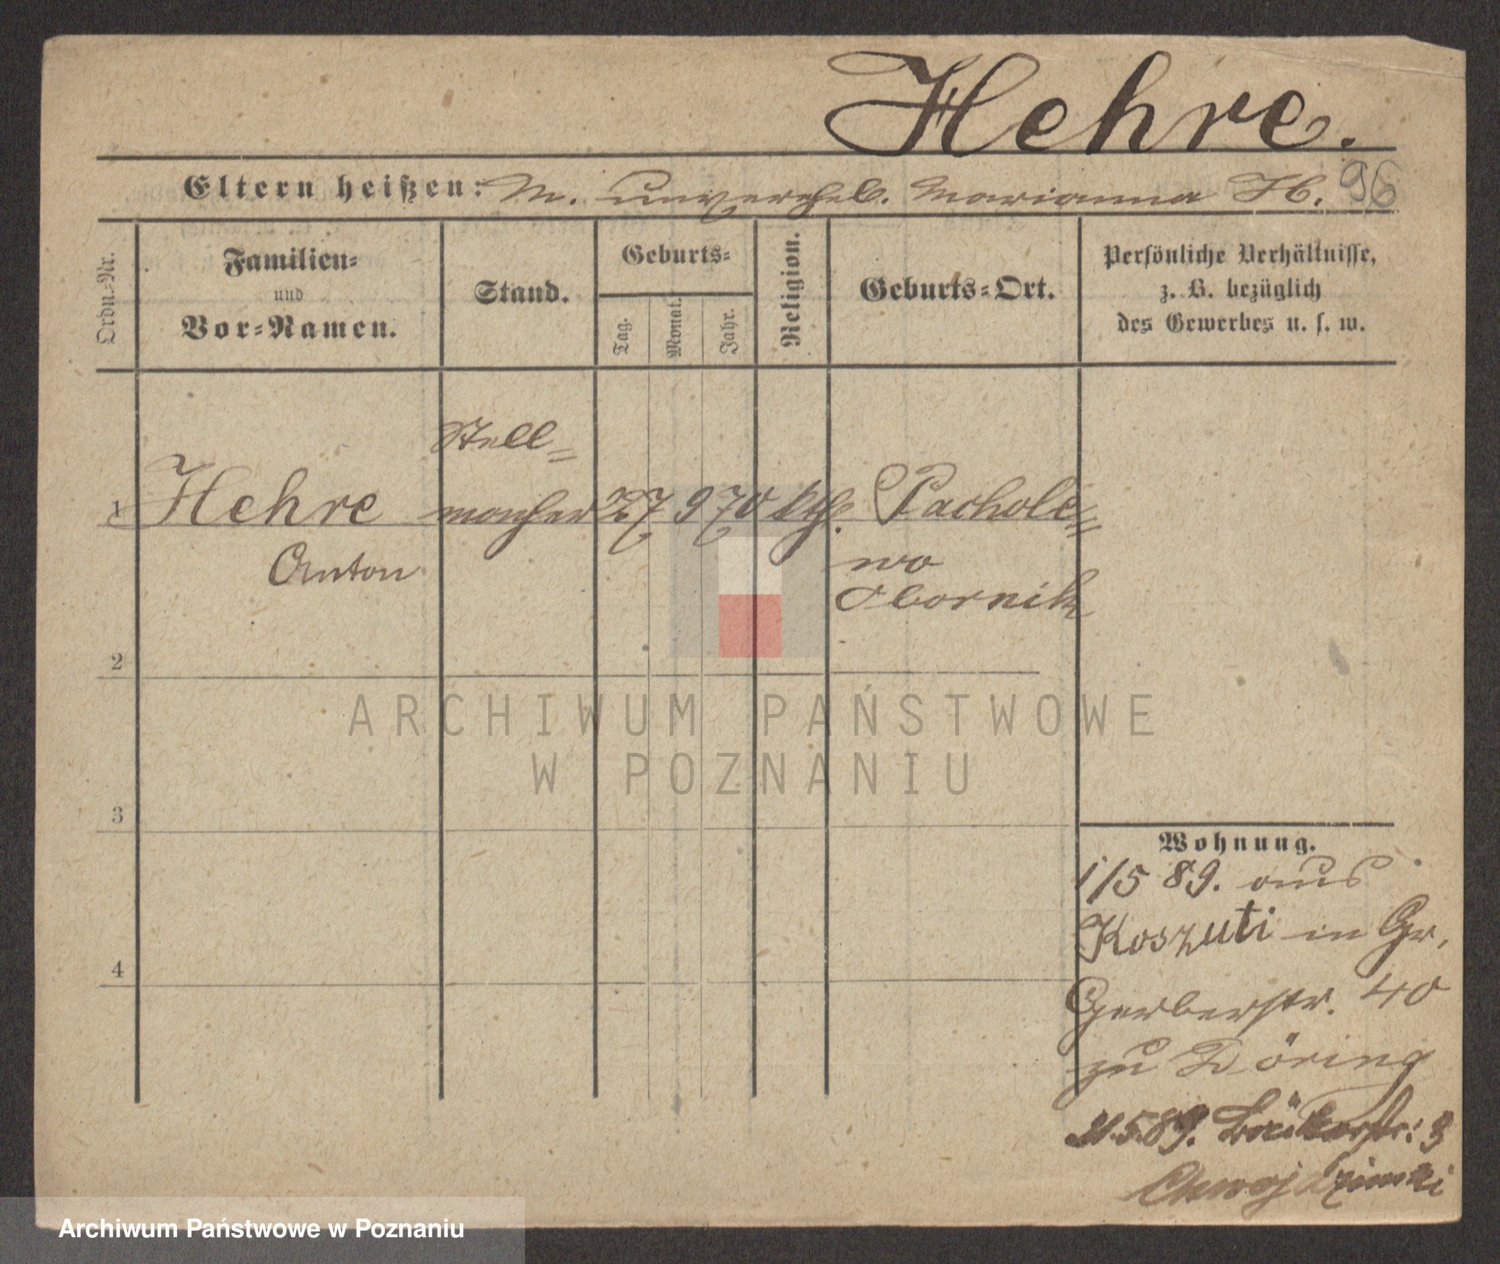 Hehre.
Eltern heißen: M. unverehel. Marianna H. 96
Ordn.-Nr.
Familien-
und
Vor-Namen.
Stand.
Geburts-
Tag.
Monat.
Jahr.
Religion.
Geburts-Ort.
Persönliche Verhältnisse,
z. B. bezüglich
des Gewerbes u. s. w.
Stell=
1 Hehre macher 27 9 70 kth. Pachole=
Anton wo
Obornik
2
ARCHIWUM PAŃSTWOWE
W POZNANIU
3
4
Wohnung.
1/5 89. aus
Koszuti in Gr.
Gerberstr. 40
zu Döring
21.5.89. Bäckerstr: 3
Chwojdzinski
Archiwum Państwowe w Poznaniu